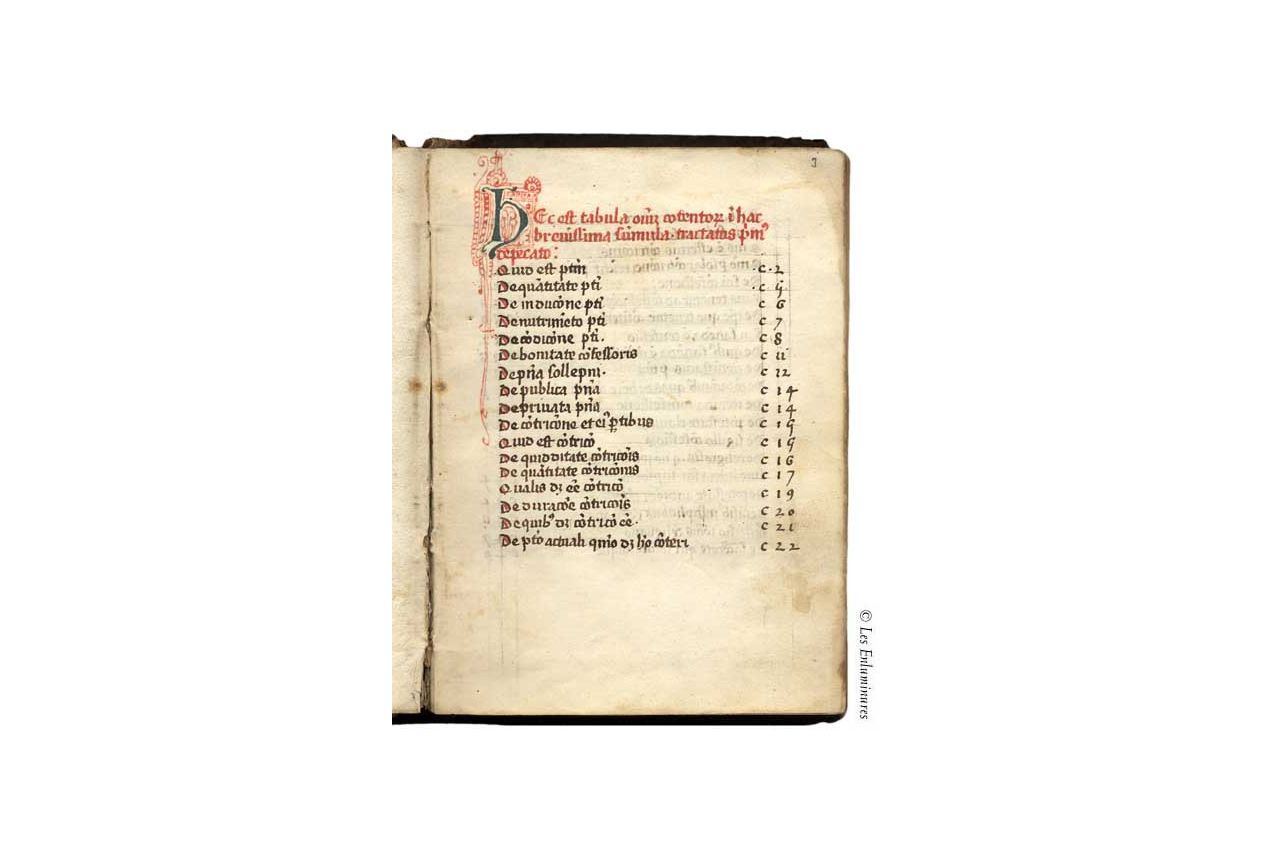 3
HEc est tabula oīuꝫ cōtentoꝝ ī hac
breuissima sūmula tractatus pͥmꝰ
de pecato:
Quid est ptm̄ .c. 2
De quātitate pti .c. 5
De inducōne pti c 6
De nutrimēto pti c 7
De cōdicōne pti. c 8
De bonitate cōfessoris c 11
De pn̄ia sollepni. c 12
De publica pn̄ia c 14
De priuata pn̄ia c 14
De cōtricōne et eiꝰ ꝑtibus c 15
Quid est cōtricō c 15
De quidditate cōtricōis c 16
De quātitate cōtricōnis c 17
Qualis dꝫ eē cōtricō c 19
De duracōe cōtricōis c 20
De quibꝰ dꝫ cōtricō eē. c 21
De ptō actuali quō dꝫ hō cōteri c 22
© Les Enluminures